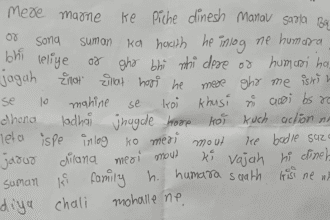 Mere marne ke Piche dinesh Manav sarla
or sona suman ka haath he inlog ne humara
bhi leliye or ghr bhi nhi dere or humari
jagah hari he mere ghr me iski
se 10 mahine se koi khusi ni aari bs
dhena ladhai jhagde hore koi kuch action
leta ispe inlog ko meri mout ke badle saza
jarur dilana meri mout ki vajah hi dinesh
suman ki family h. humara saath kisi ne
diya chali mohalle ne.